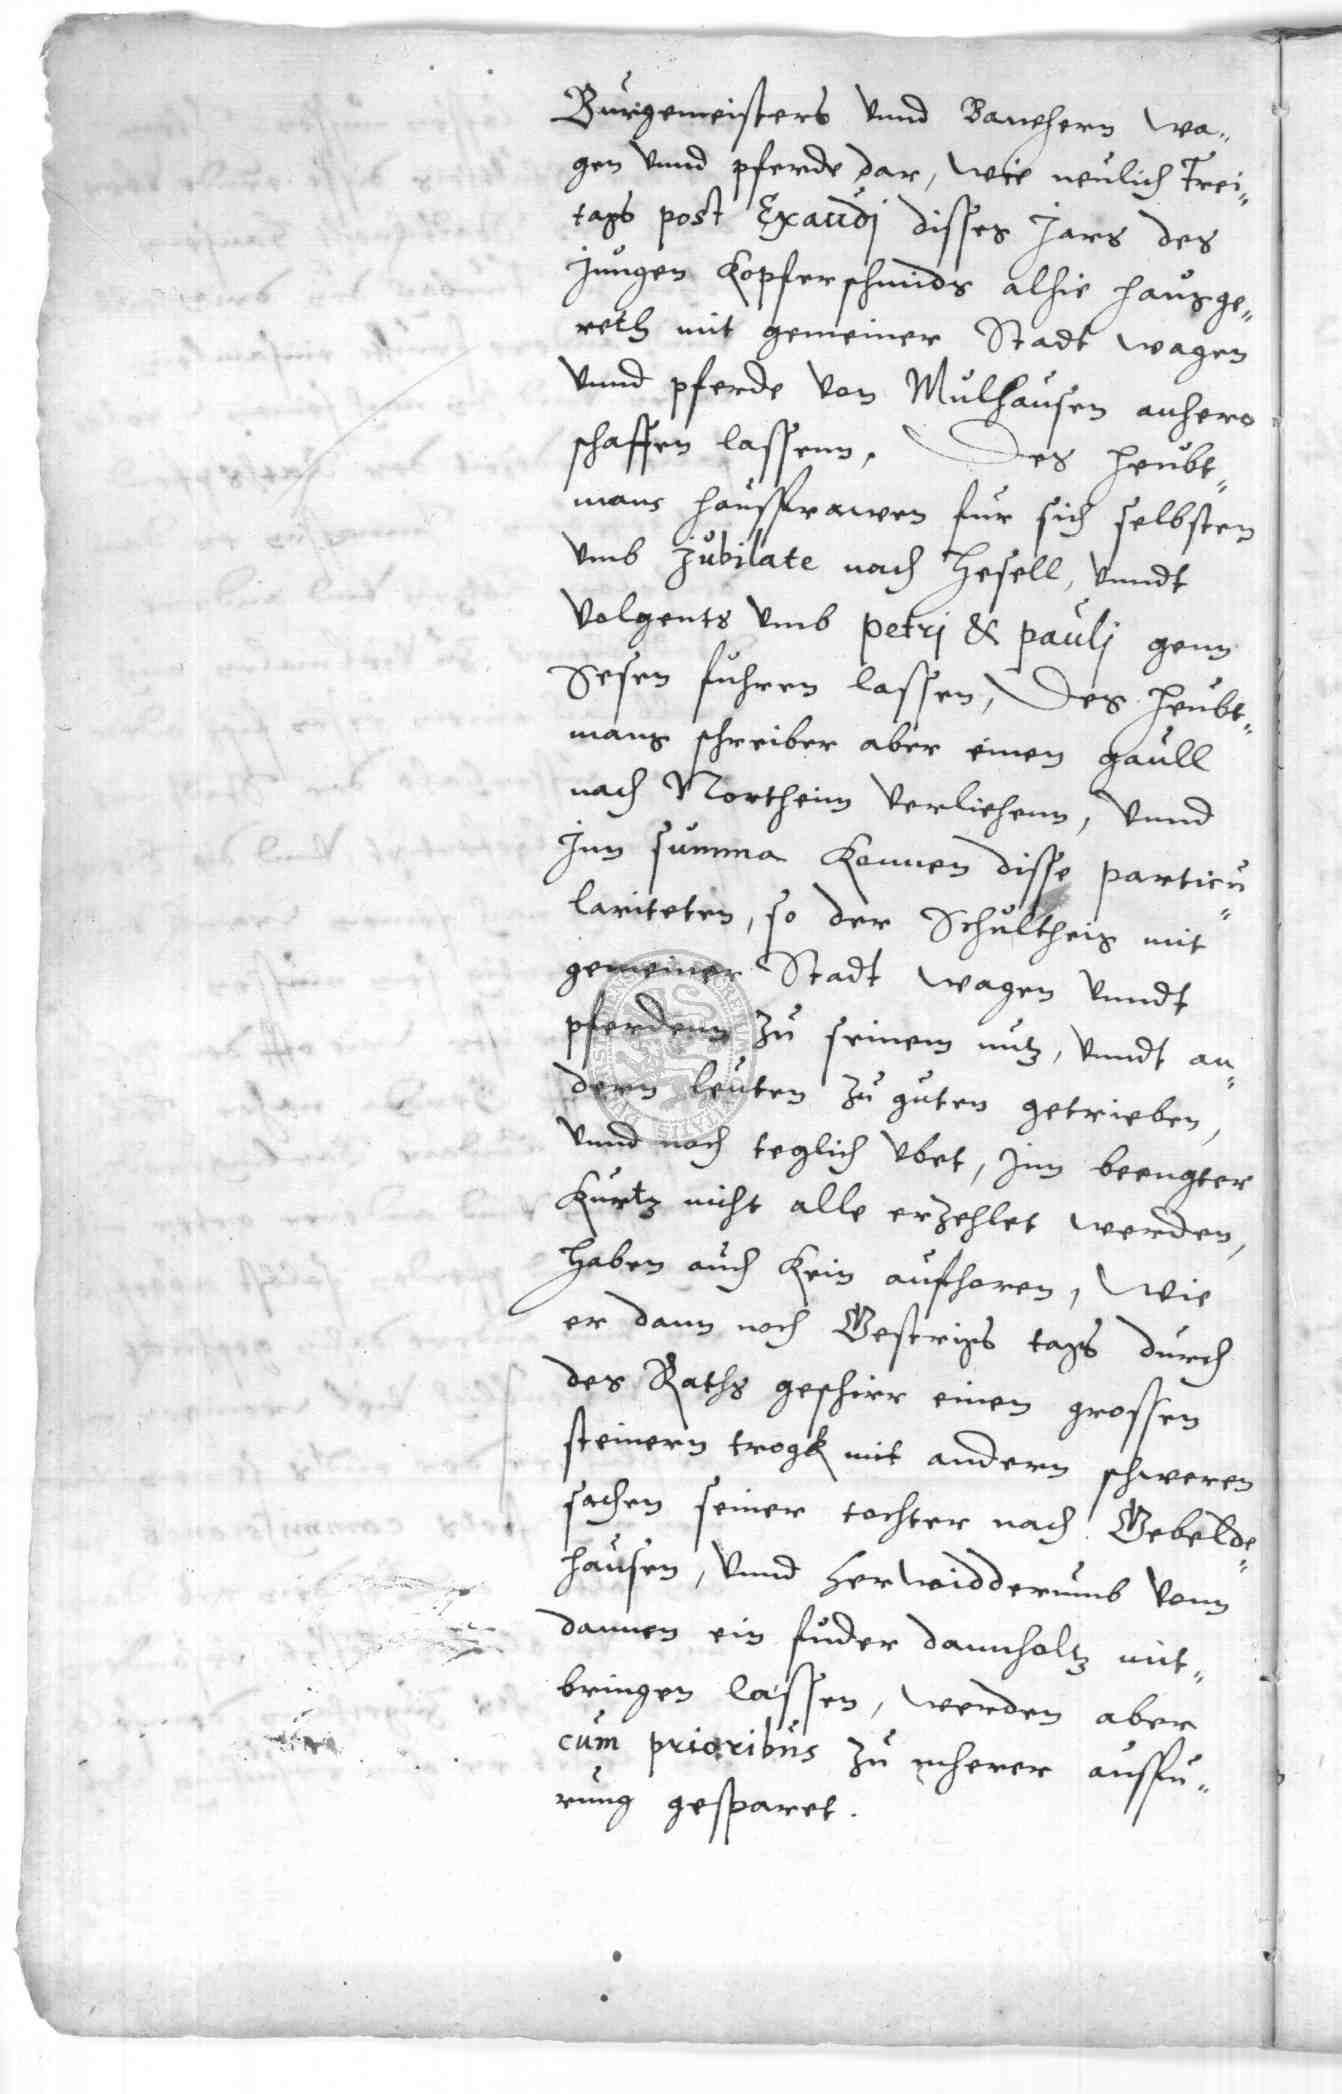 Burgemeisters vnnd Bawhern wa„
gen vnnd pferde dar, wie neulich Frei„
tags post Exaudj disses Jars des
jungen Kopferschmids alhie hausge„
reth mit gemeiner Stadt wagen
vnnd pferde von Mulhausen anhero
schaffen lassenn, Des heubt„
mans hausfrawen fur sich selbsten
vmb jubilate nach Hesell, vnndt
volgents vmb petrj & paulj genn
Sesen fuhren lassen, Des heubt„
mans schreiber aber einen gaull
nach Northeim verliehenn, vnnd
Jnn summa konnen disse particu„
lariteten, so der Schultheis mit
gemeiner Stadt wagen vnndt
pferdenn zu seinem nutz, vnndt an„
dern leuten zu guten getrieben,
vnnd noch teglich vbet, jnn beengter
kurtz nicht alle erzehlet werden,
haben auch kein aufhoren, wie
er dann noch Gestrigs tags durch
des Raths geschirr einen grossen
steinern trogk mit andern schweren
sachen seiner tochter nach Gebelde„
hausen, vnnd herwidderumb vonn
dannen ein fuder dannholtz mit„
bringen lassen, werden aber
cum prioribus zu mherer ausfu„
rung gesparet.